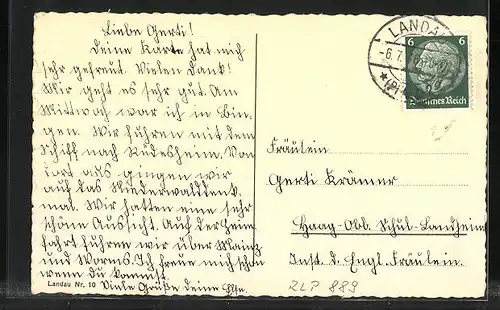 Liebe Gerti!
Deine Karte hat mich
sehr gefreut. Vielen Dank!
Mir geht es sehr gut. Am
Mittwoch war ich in Bin-
gen. Wir fuhren mit dem
Schiff nach Rüdesheim. Von
dort aus gingen wir
auf das Niederwalddenk-
mal. Wir hatten eine sehr
schöne Aussicht. Auf der Heim
fahrt fuhren wir über Mainz
und Worms. Ich freue mich schon
wenn du kommst.
Landau Nr. 10 Viele Grüße deine Else.
LANDAU
-6.7.
(Pf
6 6
Deutsches Reich
Fräulein
Gerti Krämer
Haag-Obb. Schul-Landheim
Inst. d. Engl. Fräulein.
2LP 889